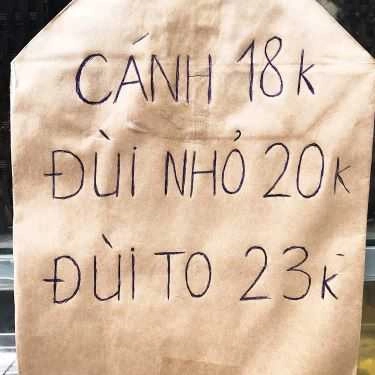 CÁNH 18k
ĐÙi NHỎ 20K
ĐÙi TO 23K